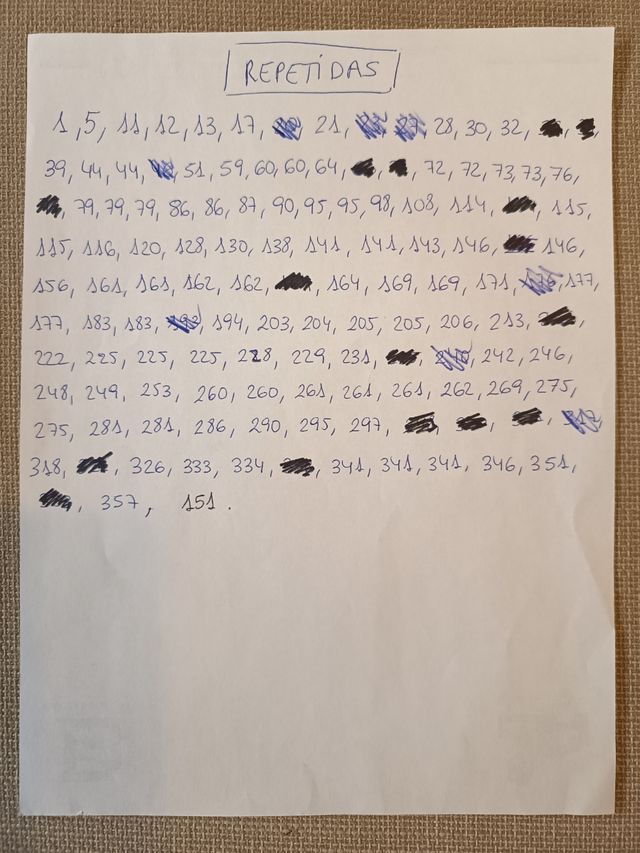 REPETIDAS
1, 5, 11, 12, 13, 17, 21, 28, 30, 32,
39, 44, 44, 51, 59, 60, 60, 64, 72, 72, 73, 73, 76,
79, 79, 79, 86, 86, 87, 90, 95, 95, 98, 108, 114, 115,
115, 116, 120, 128, 130, 138, 141, 141, 143, 146, 146,
156, 161, 161, 162, 162, 164, 169, 169, 171, 177,
177, 183, 183, 194, 203, 204, 205, 205, 206, 213,
222, 225, 225, 225, 228, 229, 231, 242, 246,
248, 249, 253, 260, 260, 261, 261, 261, 262, 269, 275,
275, 281, 281, 286, 290, 295, 297,
318, 326, 333, 334, 341, 341, 341, 346, 351,
357, 151.